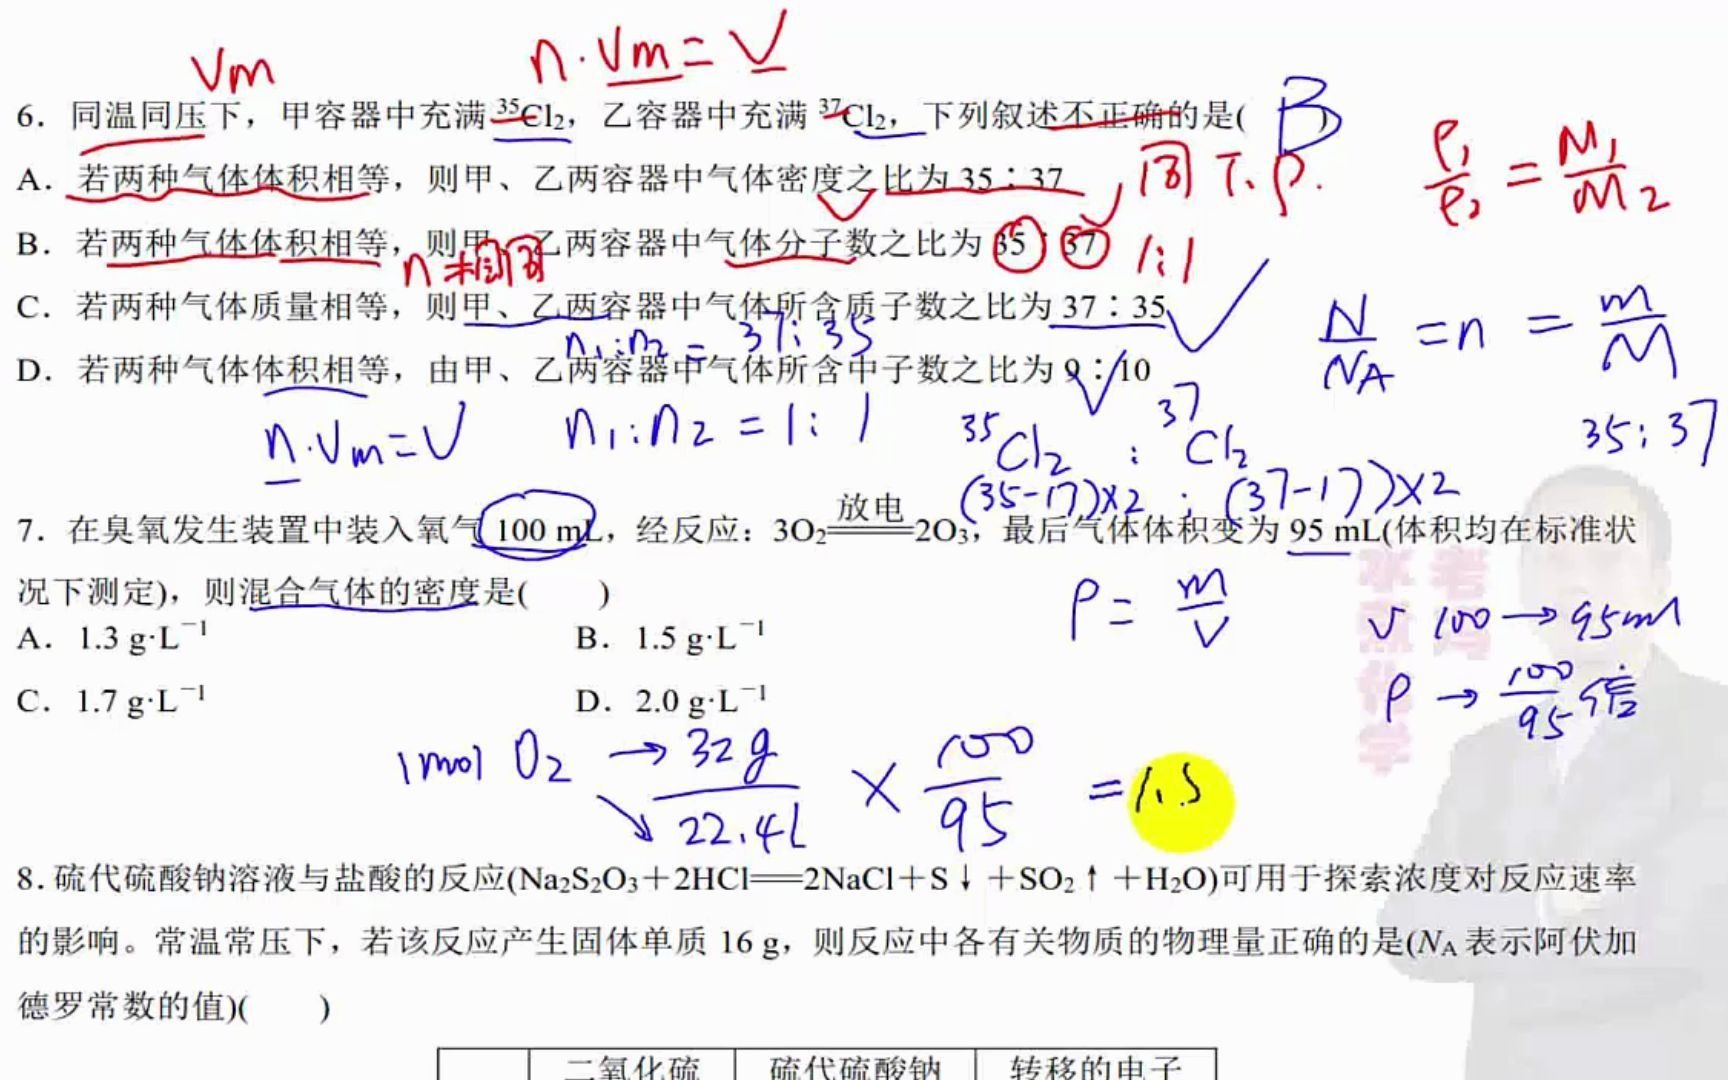 Vm n·Vm=V
6．同温同压下，甲容器中充满 ³⁵Cl₂，乙容器中充满 ³⁷Cl₂，下列叙述不正确的是( B )
A．若两种气体体积相等，则甲、乙两容器中气体密度之比为 35∶37
同 T、P. ρ₁/ρ₂ = M₁/M₂
B．若两种气体体积相等，则甲、乙两容器中气体分子数之比为 35∶37
n 相同 1:1
C．若两种气体质量相等，则甲、乙两容器中气体所含质子数之比为 37∶35
n₁:n₂ = 37:35 N/NA = n = m/M
D．若两种气体体积相等，由甲、乙两容器中气体所含中子数之比为 9∶10
n·Vm=V n₁:n₂ = 1:1 ³⁵Cl₂ : ³⁷Cl₂ 35:37
(35-17)×2 : (37-17)×2
7．在臭氧发生装置中装入氧气 100 mL，经反应：3O₂ =放电= 2O₃，最后气体体积变为 95 mL(体积均在标准状
况下测定)，则混合气体的密度是( )
ρ = m/V V 100→95ml
A．1.3 g·L⁻¹ B．1.5 g·L⁻¹
C．1.7 g·L⁻¹ D．2.0 g·L⁻¹
ρ → 100/95 倍
1mol O₂ → 32g/22.4L × 100/95 = 1.5
8.硫代硫酸钠溶液与盐酸的反应(Na₂S₂O₃＋2HCl══2NaCl＋S↓＋SO₂↑＋H₂O)可用于探索浓度对反应速率
的影响。常温常压下，若该反应产生固体单质 16 g，则反应中各有关物质的物理量正确的是(NA 表示阿伏加
德罗常数的值)( )
二氧化硫 硫代硫酸钠 转移的电子